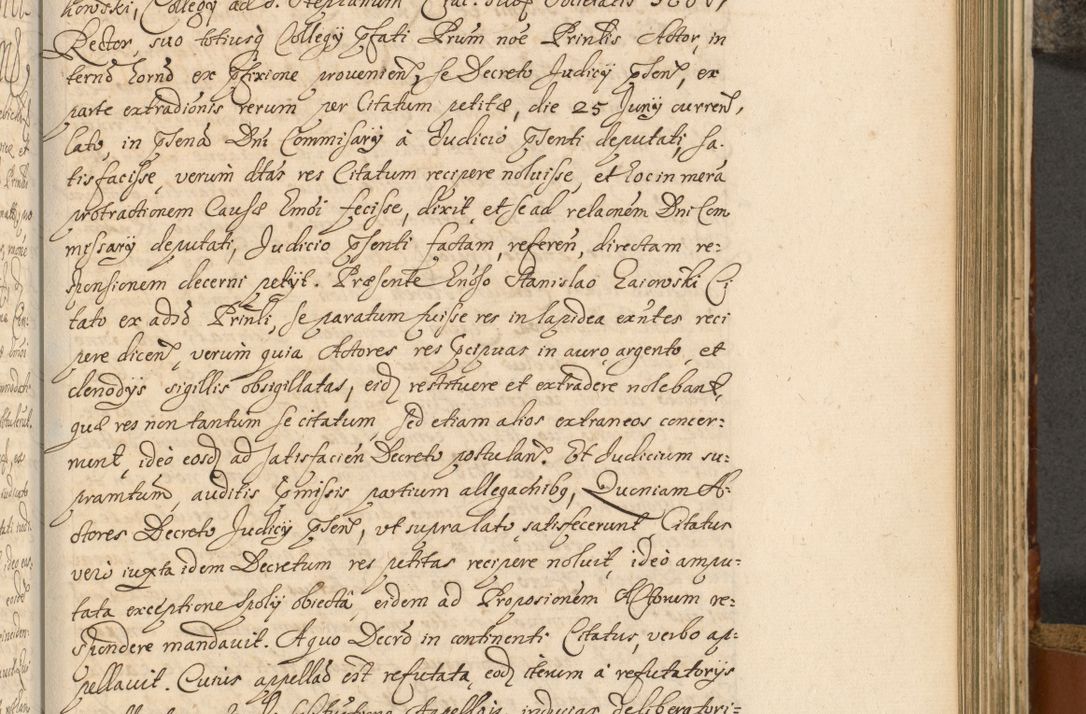 kowski, Collegij ad S. Stephanum Crac. Societatis
Rector, suo totiusq Collegij pfati Prum noe Prinlis Actor, in
termo horno ex pfixione provenien, se Decreto Judicij psen, ex
parte extradionis rerum per Citatum petitæ, die 25 Junij curren,
lato, in psena Dni Commissarij à Judicio psenti deputati, sa-
tisfacisse, verum dtas res Citatum recipere noluisse, et hoc in mera
protractionem Causæ Emoi fecisse, dixit, et se ad relaonem Dni Com
missarij deputati, Judicio psenti factam, referen, directam re:
sponsionem decerni petijt. Præsente Stanislao Ci
tato ex adso Prinli, se paratum fuisse res in lapidea exntes reci
pere dicen, verum quia Actores res pcipuas in auro, argento, et
clenodijs sigillis obsigillatas, eid restituere et extradere nolebant,
quæ res non tantum se citatum, sed etiam alios extraneos concer:
nunt, ideo eosd ad satisfacien Decreto postulan. Et Judicium su:
pramtum, auditis pmissis partium allegaonibq, Quoniam A:
ctores Decreto Judicij psen, ut supra lato, satisfecerunt Citatus
vero iuxta idem Decretum res petitas recipere noluit, ideo ampu:
tata exceptione spolij obiecta, eidem ad Proposionem Actorum re:
spondere mandavit. A quo Decro in continenti Citatus, verbo ap:
pellavit. Cuius appellao est refutata, eod iterum à refutatorijs
Appellais, inducias deliberatori: